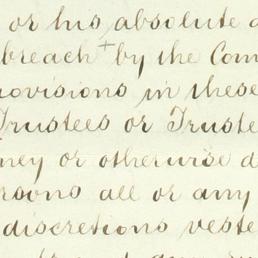 or his absolute
breach + by the Com
rovisions in these
Trustees or Truste
ney or otherwise d
rsons all or any
discretions veste